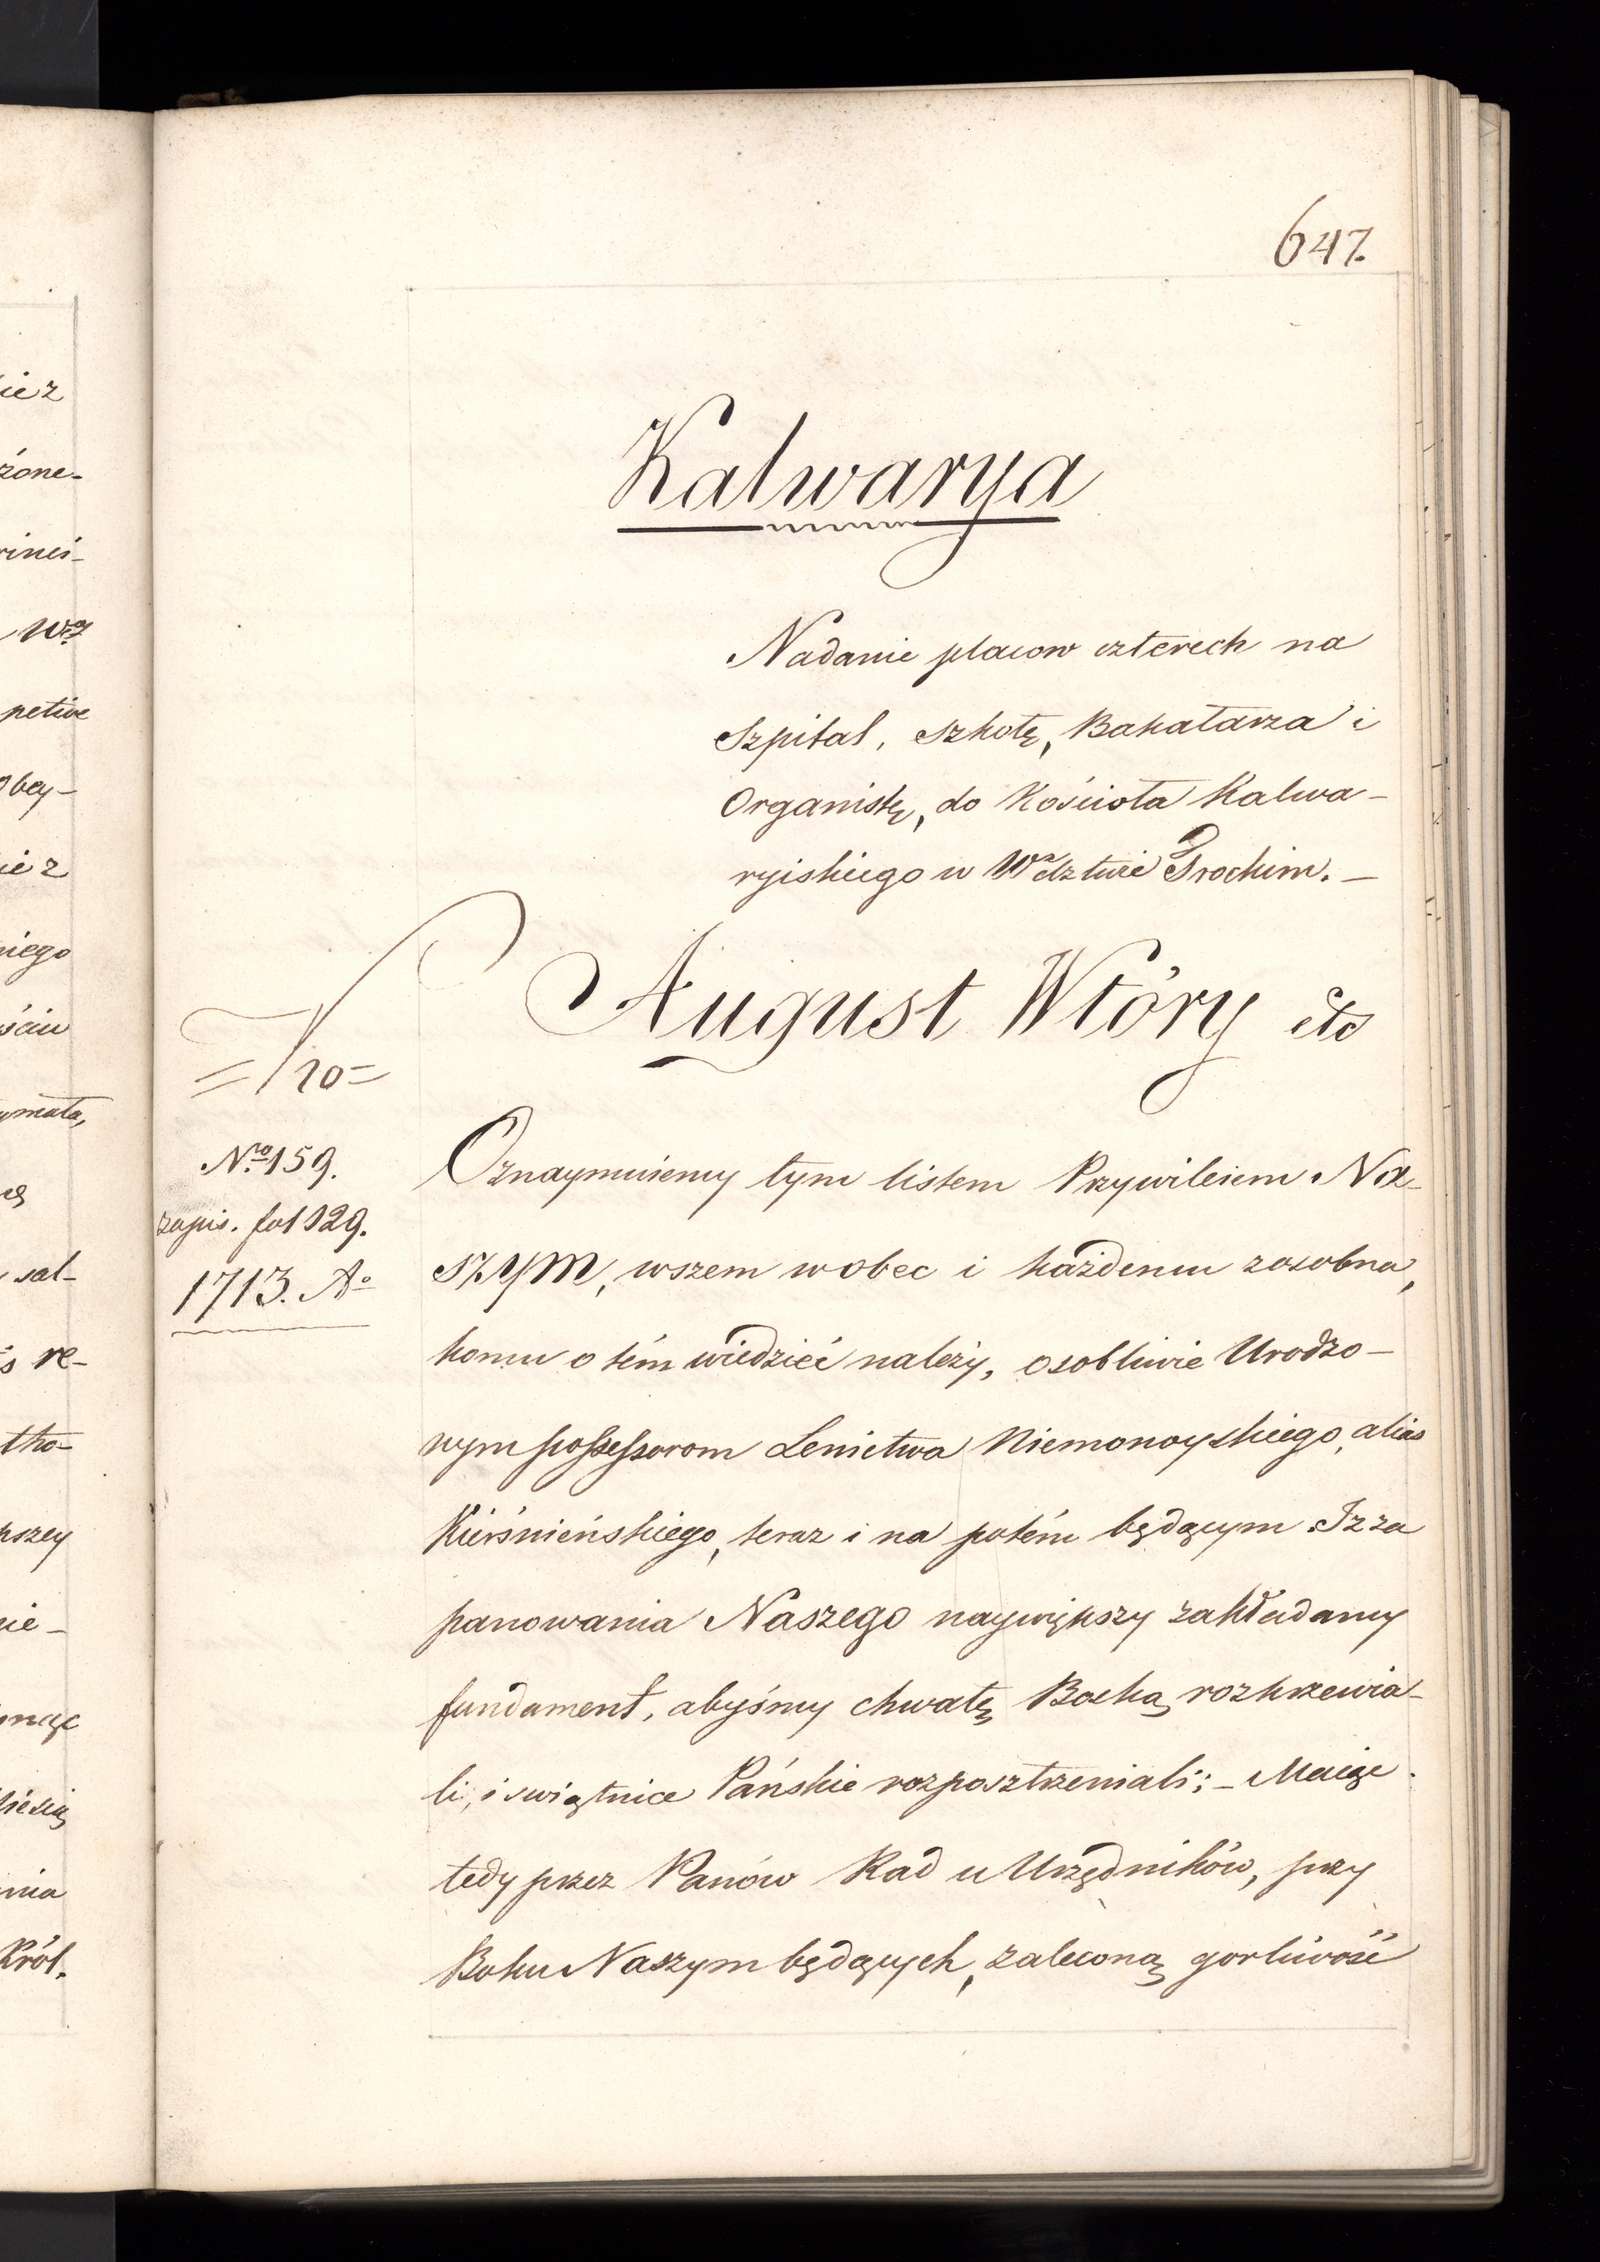 647.
Kalwarya
Nadanie placow czterech na
Szpital, szkołę, Bakałarza i
Organistę, do Kościoła Kalwa-
ryiskiego w Wdztwie Trockim. -
August Wtóry etc
No 159.
zapis. fol 129.
1713. Ao
Oznaymuiemy tym listem Przywileiem Na-
szym, wszem wobec i każdemu zosobna,
komu o tém wiedzieć należy, osobliwie Urodzo-
nym possessorom Lenictwa Niemonoyskiego, alias
Kirśnieńskiego, teraz i na potém będącym. Iż za
panowania Naszego naywiększy zakładamy
fundament, abyśmy chwałę Boską rozkrzewia-
li, i swiątnice Pańskie rozposztrzeniali; - Maiąc
tedy przez Panów Rad u Urzędników, przy
Boku Naszym będących, zaleconą gorliwość
iez
żone-
petive
Obey-
iez
niego
ściu
ymała,
sal-
s re-
nie-
nia
Król.